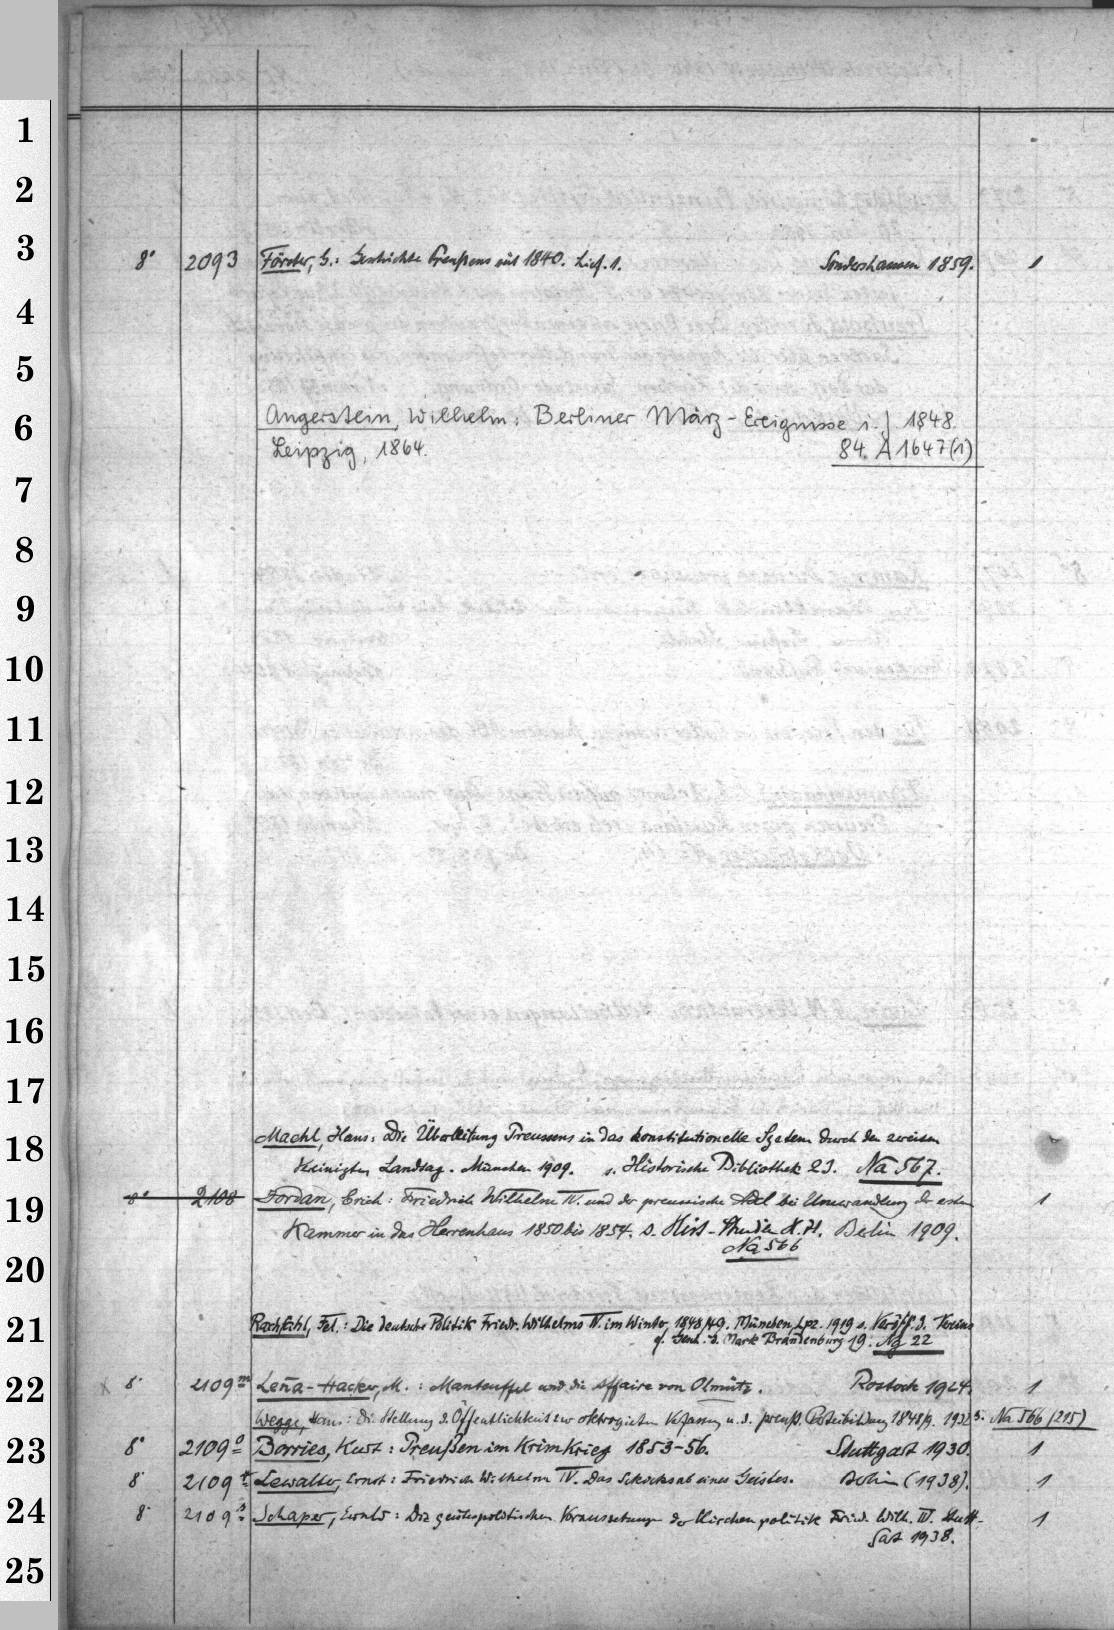 1
2
3
8° 2093 Förster, G.: Geschichte Preußens seit 1840. Lief. 1. Sondershausen 1859. 1
4
5
6
Angerstein, Wilhelm: Berliner März-Ereignisse i. J. 1848.
Leipzig, 1864. 84. A 1647(1)
7
8
9
10
11
12
13
14
15
16
17
18
Maehl, Hans: Die Überleitung Preussens in das konstitutionelle System durch den zweiten
Vereinigten Landtag. München 1909. s. Historische Bibliothek 23. Na 567.
19
8° 2108 Jordan, Erich: Friedrich Wilhelm IV. und der preussische Adel bei Umwandlung der ersten 1
Kammer in das Herrenhaus 1850 bis 1854. s. Hist. Studien Berlin 1909.
Na 566
20
21
Rachfahl, Fel.: Die deutsche Politik Friedr. Wilhelms IV. im Winter 1848/49. München, Lpz. 1919 s. Veröff. d. Vereins
f. Gesch. d. Mark Brandenburg 19. Ng 22
22
8° 2109 m Hacker, M.: Manteuffel und die Affaire von Olmütz. Rostock 1924. 1
Wegge, Hans: Die Stellung d. Öffentlichkeit zur oktroyierten Verfassung u. d. preuß. Parteibildung 1848/9. 1932 s. Na 566 (215)
23
8° 2109 o Borries, Kurt: Preußen im Krimkrieg 1853-56. Stuttgart 1930. 1
8° 2109 Lewalter, Ernst: Friedrich Wilhelm IV. Das Schicksal eines Geistes. Berlin (1938). 1
24
8° 2109 Schaper, Ewald: Die geistespolitischen Voraussetzungen der Kirchenpolitik Friedr. Wilh. IV. Stutt-
gart 1938. 1
25